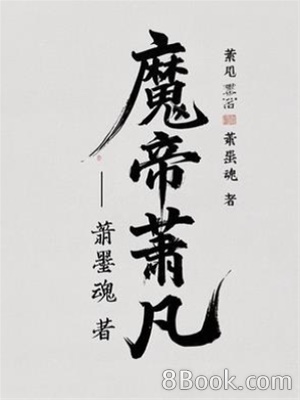 魔帝萧凡
—萧墨魂 著
萧墨魂 著
8Book.com